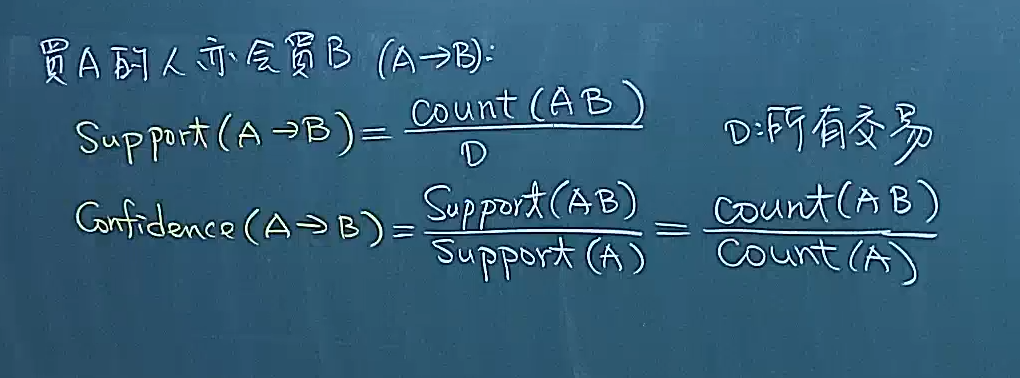 買A的人亦会買B (A→B):
Support(A→B)= count(AB) / D D:所有交易
Confidence(A→B)= Support(AB) / Support(A) = count(AB) / Count(A)